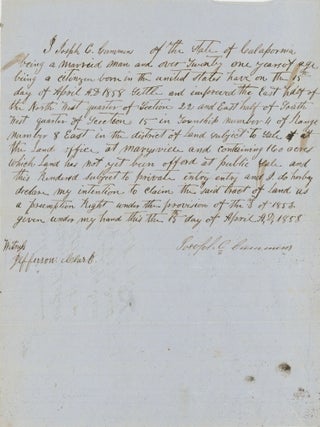 I Joseph C. Cummins of the State of Calafornia
being a married man and over Twenty one years of age
being a Citonzen born in the united states have on the
day of April AD 1858 Settle and improved the East half of
the North West quarter of Section 22 and East half of South
West quarter of Section 15 in Township number 4 of Range
number 8 East in the district of land subject to Sale at
the land office at Marysville and containing 160 acres
which land has not yet been offord at public Sale and
thus Rendered subject to private entry and I do hereby
declare my intention to claim the said tract of land as
a premption Right under the provision of the of 1853
given under my hand this the day of April AD, 1858
Joseph C Cummins
Witness
Jefferson Clark